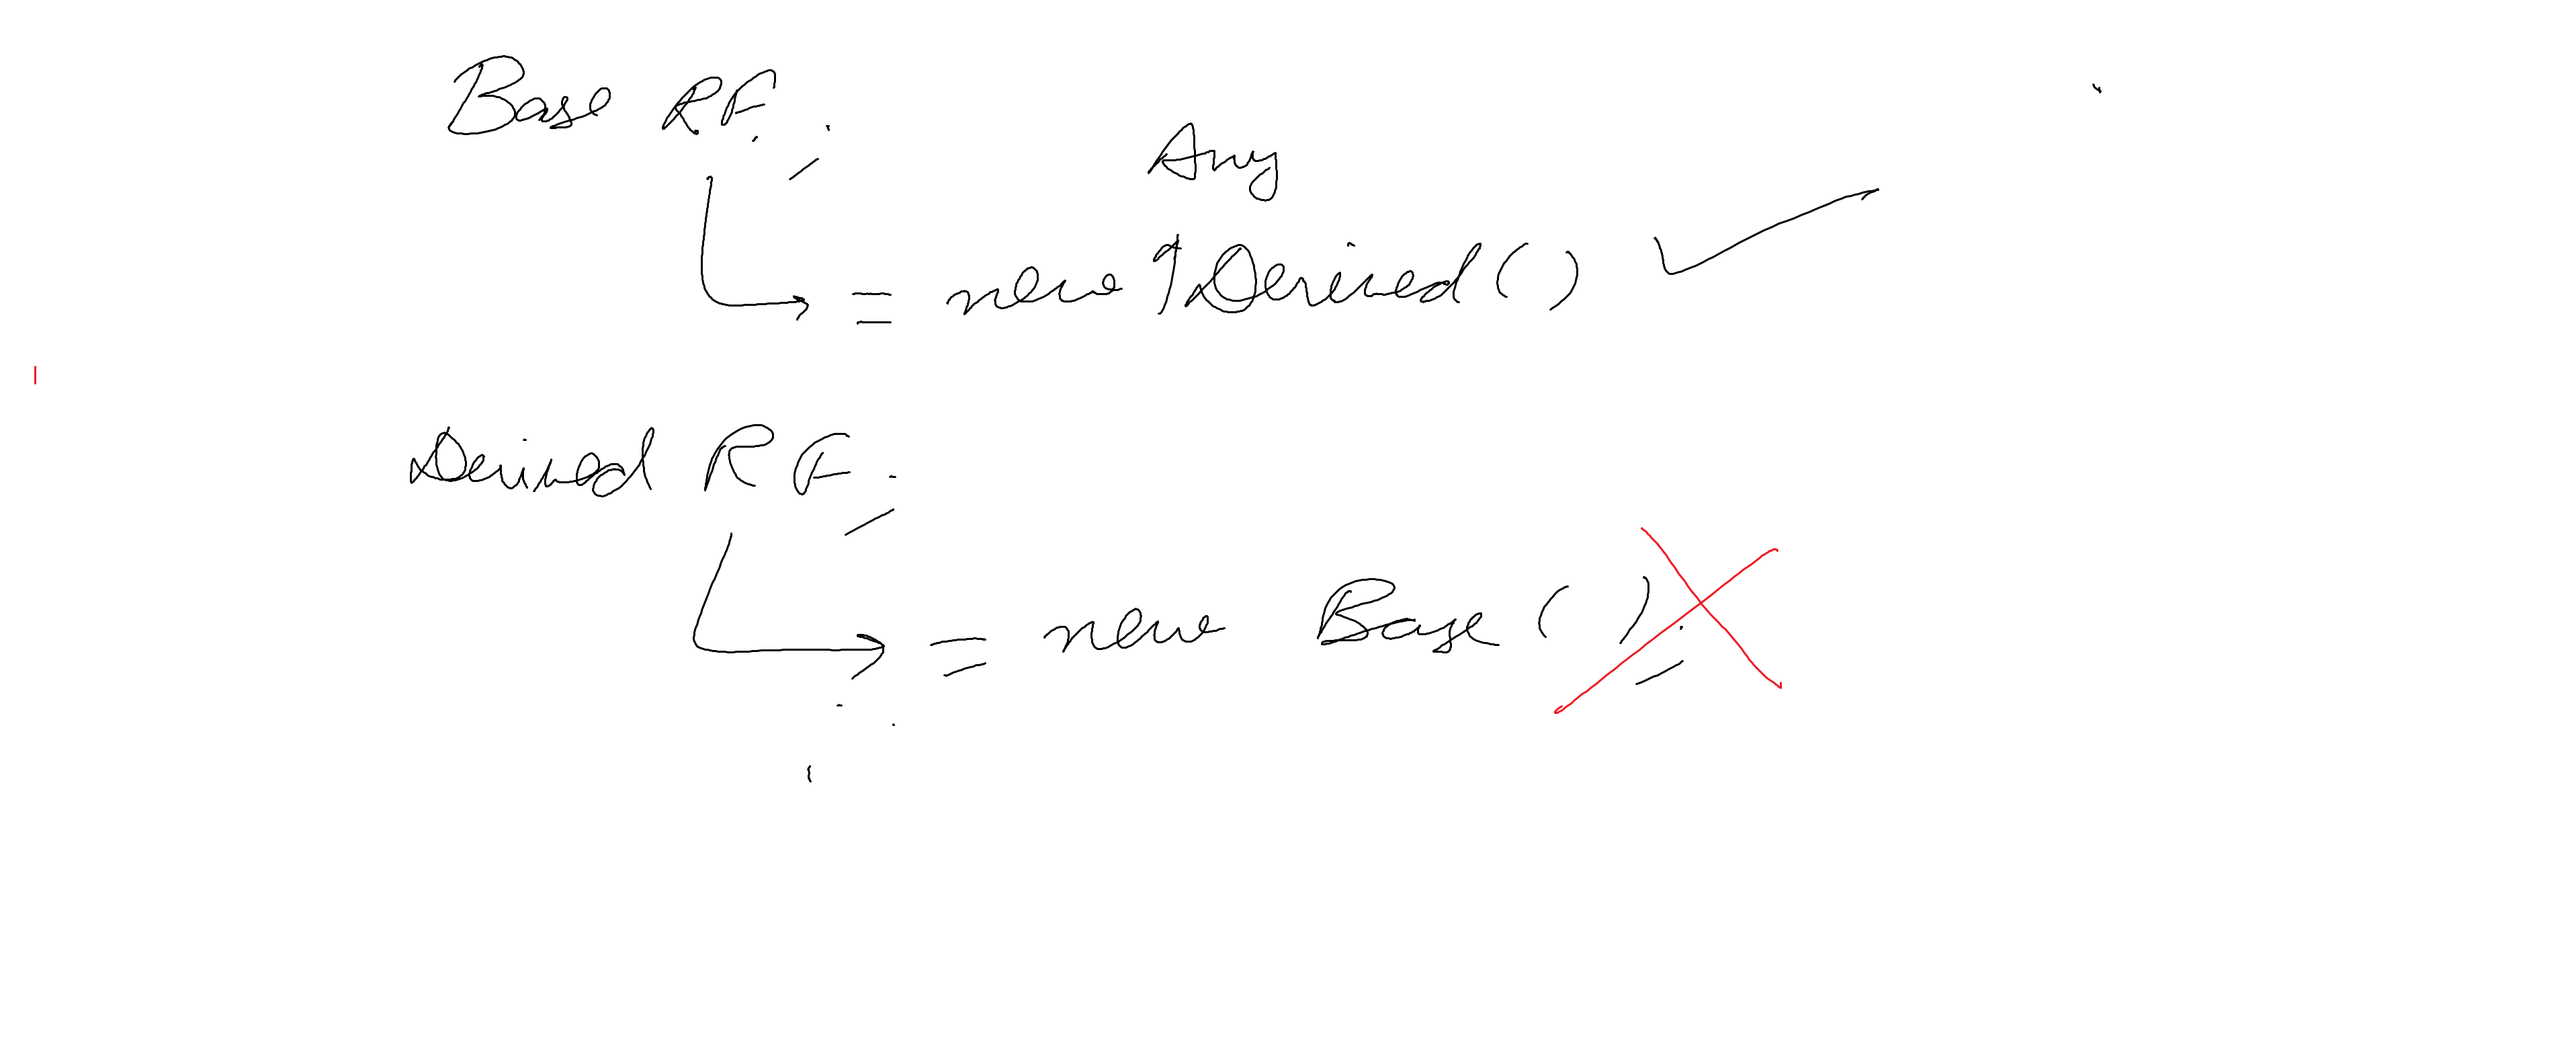 Base RF;
Any
= new Derived()
Derived RF;
= new Base();